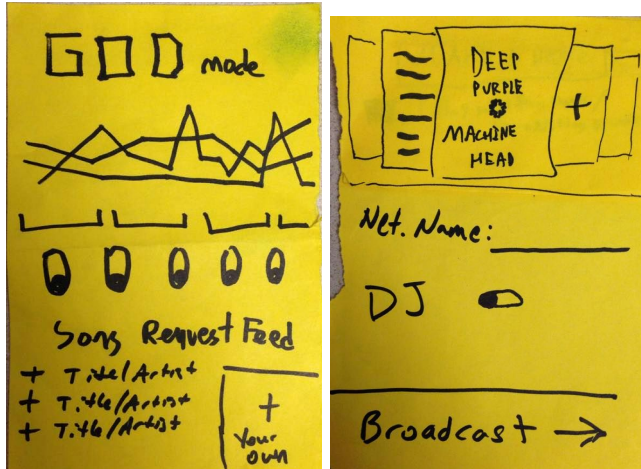 GOD mode
Song Request Feed
+ Title/Artist
+ Title/Artist
+ Title/Artist
+
Your
own
DEEP
PURPLE
MACHINE
HEAD
+
Net. Name:
DJ
Broadcast →